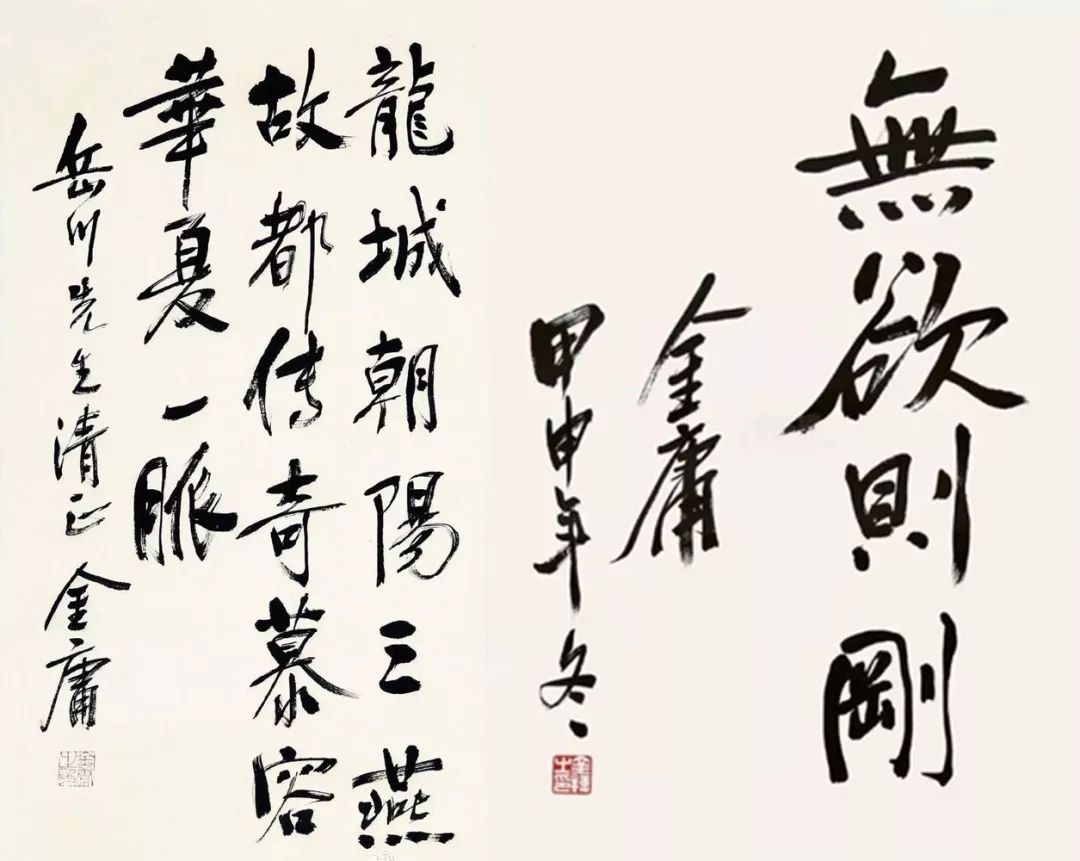 龍城朝陽三燕
故都傳奇慕容
華夏一脈
岳川先生清正
金庸
無欲則剛
金庸
甲申年冬